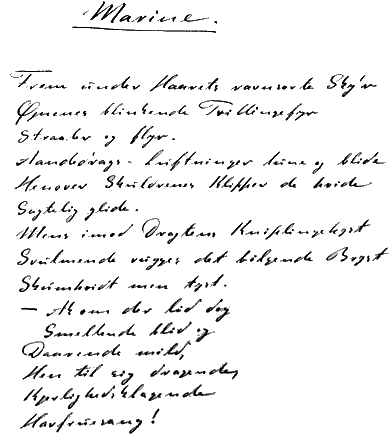 Marine.
Frem under Haarets ravnsorte Sky'r
Øjnenes blinkende Tvillingefyr
Straaler og flyr.
Aandedrags-Luftninger lune og blide
Henover Skuldrenes Klipper de hvide
Sagtelig glide.
Mens imod Dragtens Kniplingekyst
Svulmende vugges det bølgende Bryst
Skumhvidt men tyst.
— Ak om der lød dog
Smeltende blid og
Daarende mild,
Hen til sig dragende,
Kjærlighedsklagende
Havfruesang!